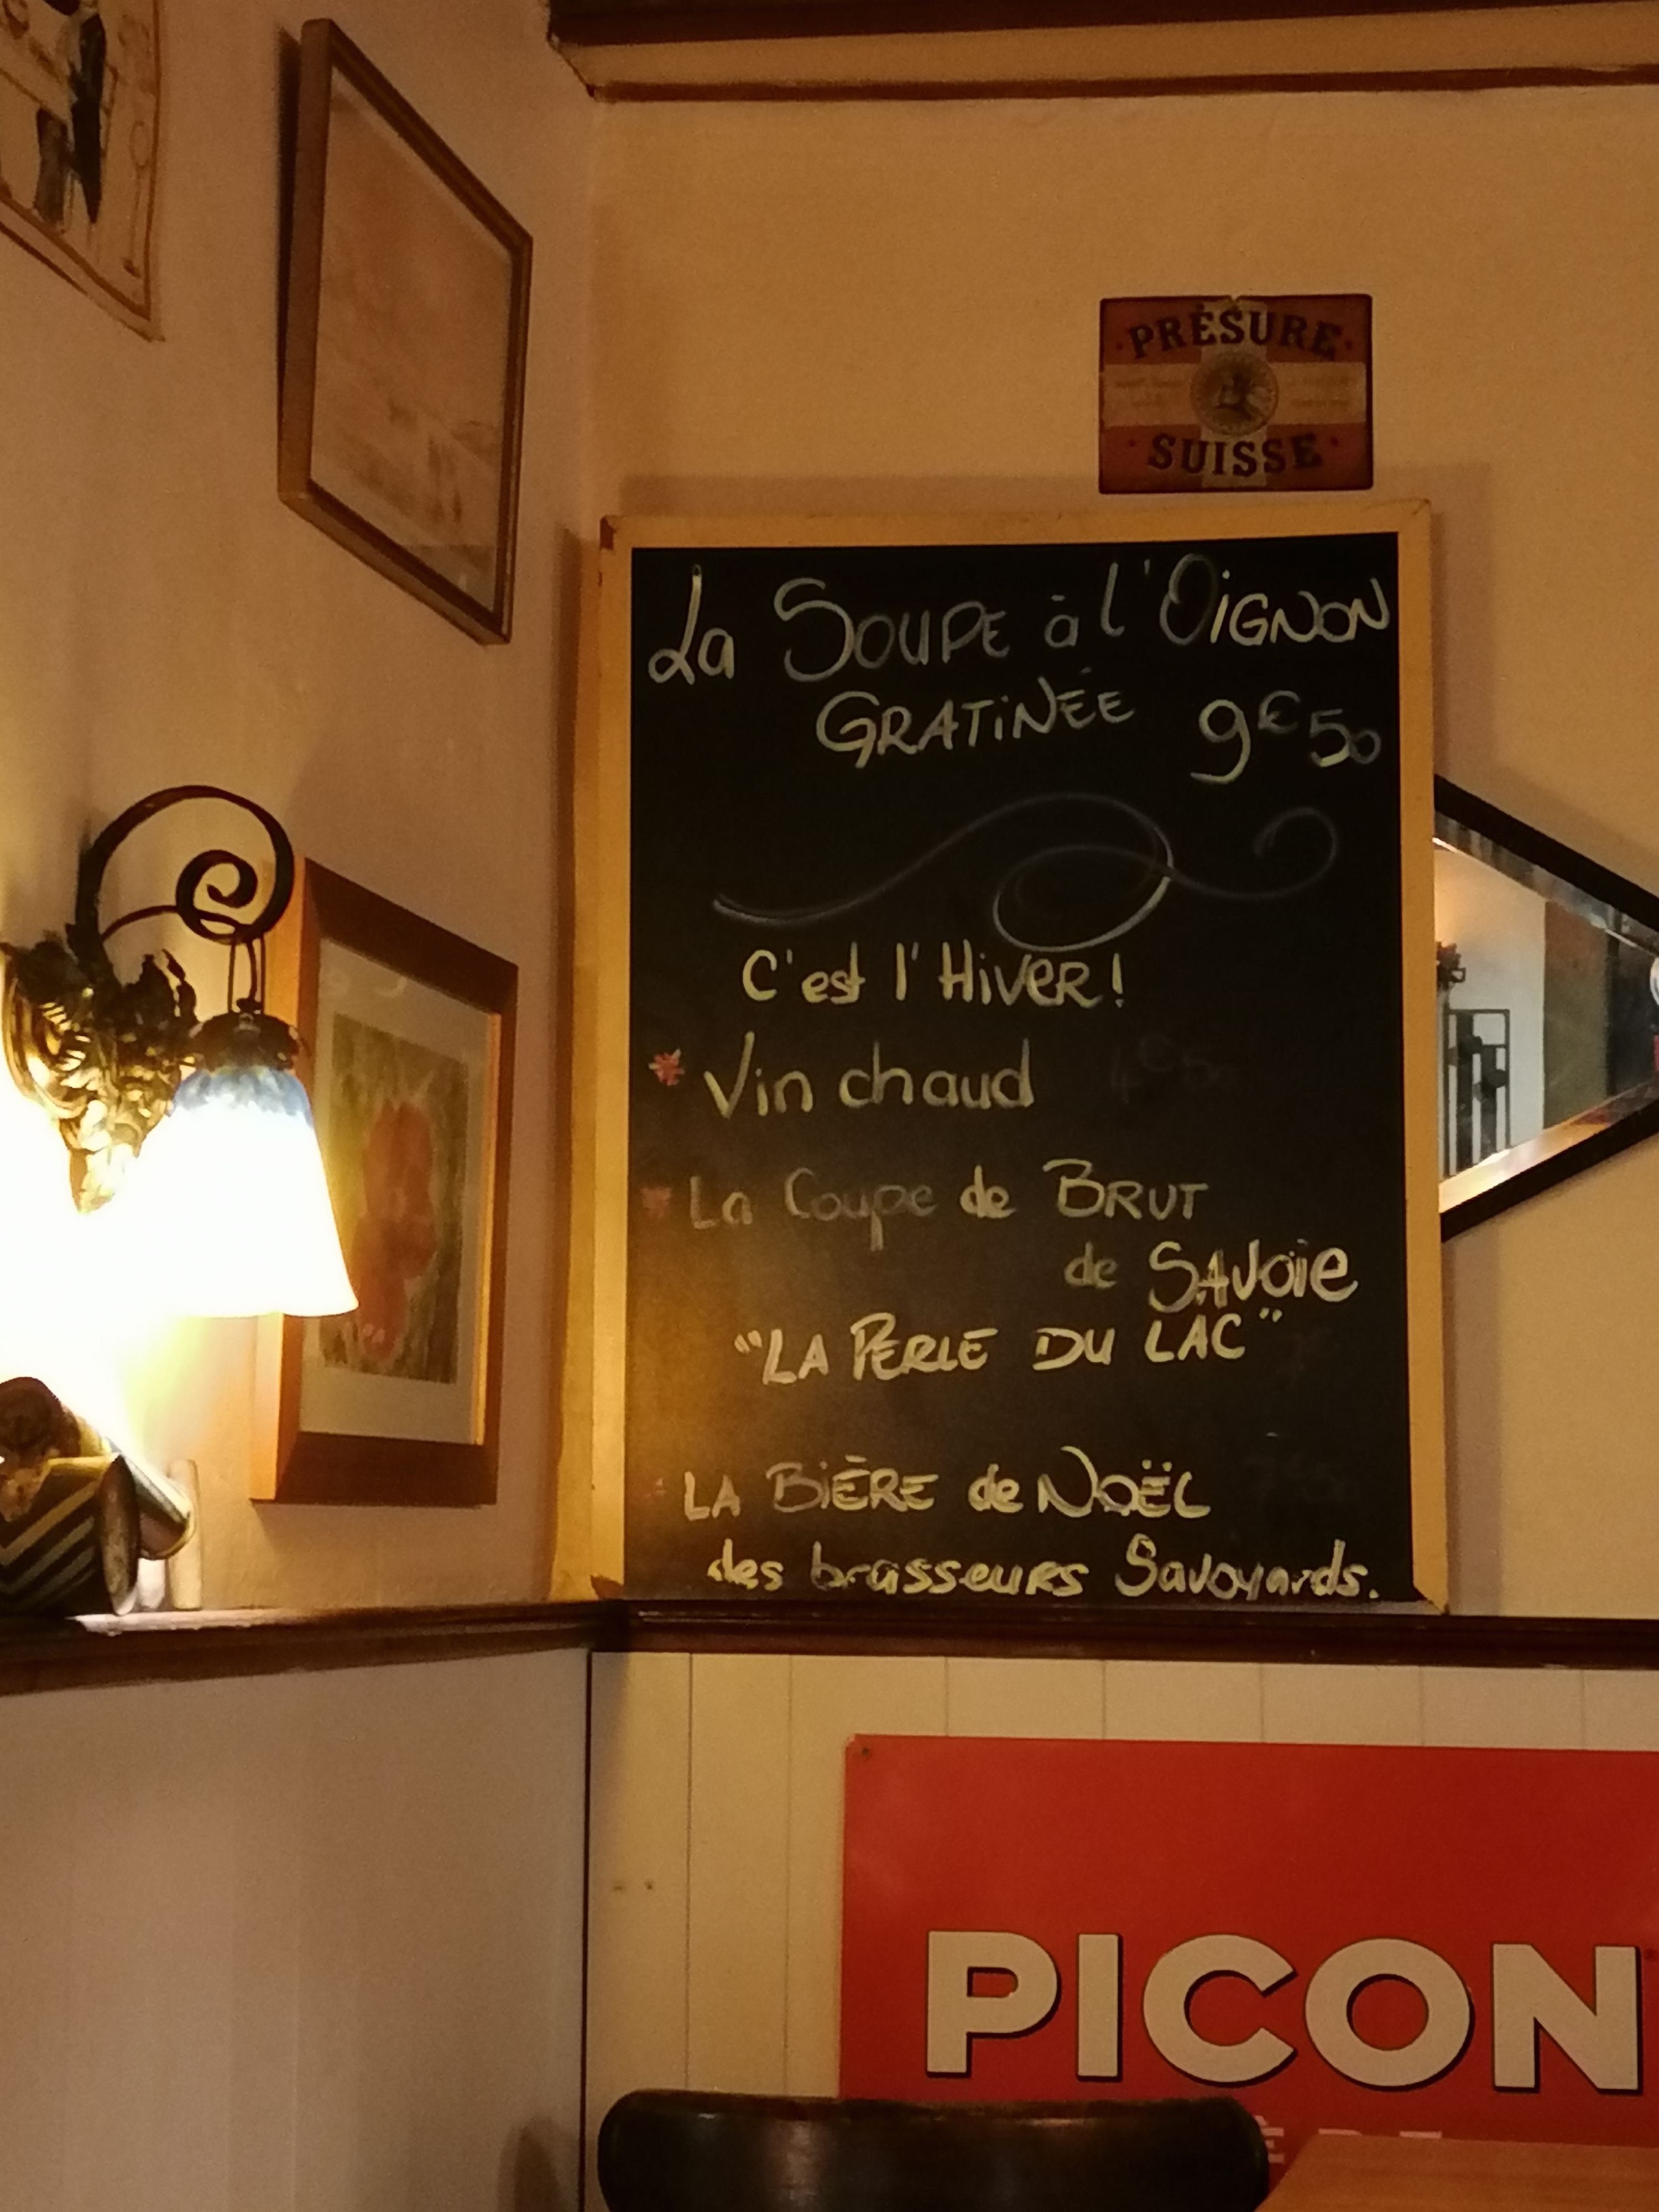 PRÉSURE
SUISSE
La SOUPE à l'OiGNON
GRATiNÉE 9€50
C'est l'HiVER!
* Vin chaud 4€50
* La Coupe de BRUT
de SAVOiE
"LA PERLE DU LAC"
* LA BiÈRE de NOËL
des brasseurs Savoyards.
PICON